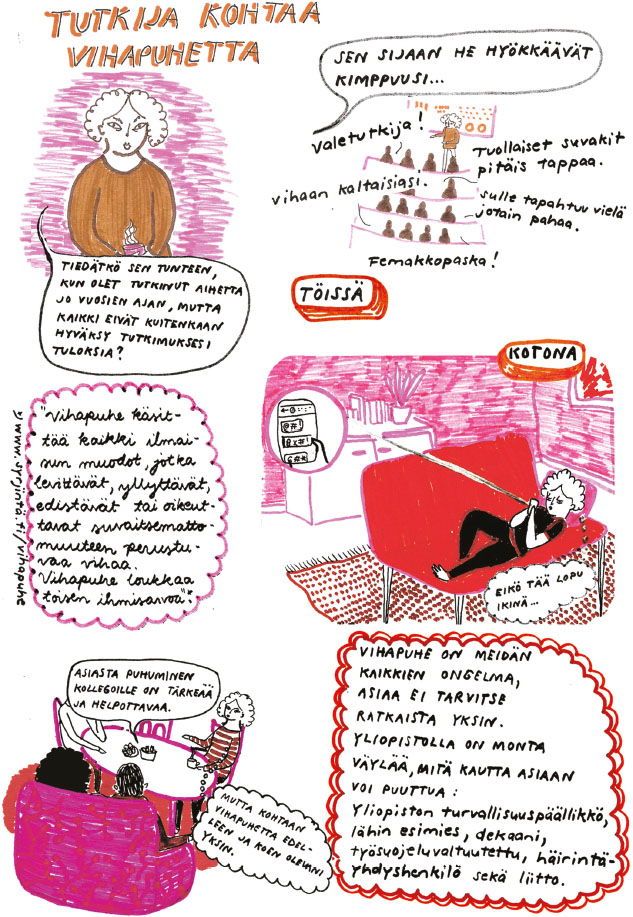 TUTKIJA KOHTAA
VIHAPUHETTA
TIEDÄTKÖ SEN TUNTEEN,
KUN OLET TUTKINUT AIHETTA
JO VUOSIEN AJAN, MUTTA
KAIKKI EIVÄT KUITENKAAN
HYVÄKSY TUTKIMUKSESI
TULOKSIA?
SEN SIJAAN HE HYÖKKÄÄVÄT
KIMPPUUSI...
Valetutkija!
Tuollaiset suvakit
pitäis tappaa.
vihaan kaltaisiasi.
Sulle tapahtuu vielä
jotain pahaa.
Femakkopaska!
TÖISSÄ
KOTONA
@#!
&x#!
&#*
EIKÖ TÄÄ LOPU
IKINÄ...
"Vihapuhe käsit-
tää kaikki ilmai-
sun muodot, jotka
levittävät, yllyttävät,
edistävät tai oikeut-
tavat suvaitsematto-
muuteen perustu-
vaa vihaa.
Vihapuhe loukkaa
toisen ihmisarvoa."*
*) www.syrjintä.fi/vihapuhe
ASIASTA PUHUMINEN
KOLLEGOILLE ON TÄRKEÄÄ
JA HELPOTTAVAA.
MUTTA KOHTAAN
VIHAPUHETTA EDEL-
LEEN JA KOEN OLEVANI
YKSIN.
VIHAPUHE ON MEIDÄN
KAIKKIEN ONGELMA,
ASIAA EI TARVITSE
RATKAISTA YKSIN.
YLIOPISTOLLA ON MONTA
VÄYLÄÄ, MITÄ KAUTTA ASIAAN
VOI PUUTTUA:
Yliopiston turvallisuuspäällikkö,
lähin esimies, dekaani,
työsuojeluvaltuutettu, häirintä-
yhdyshenkilö sekä liitto.